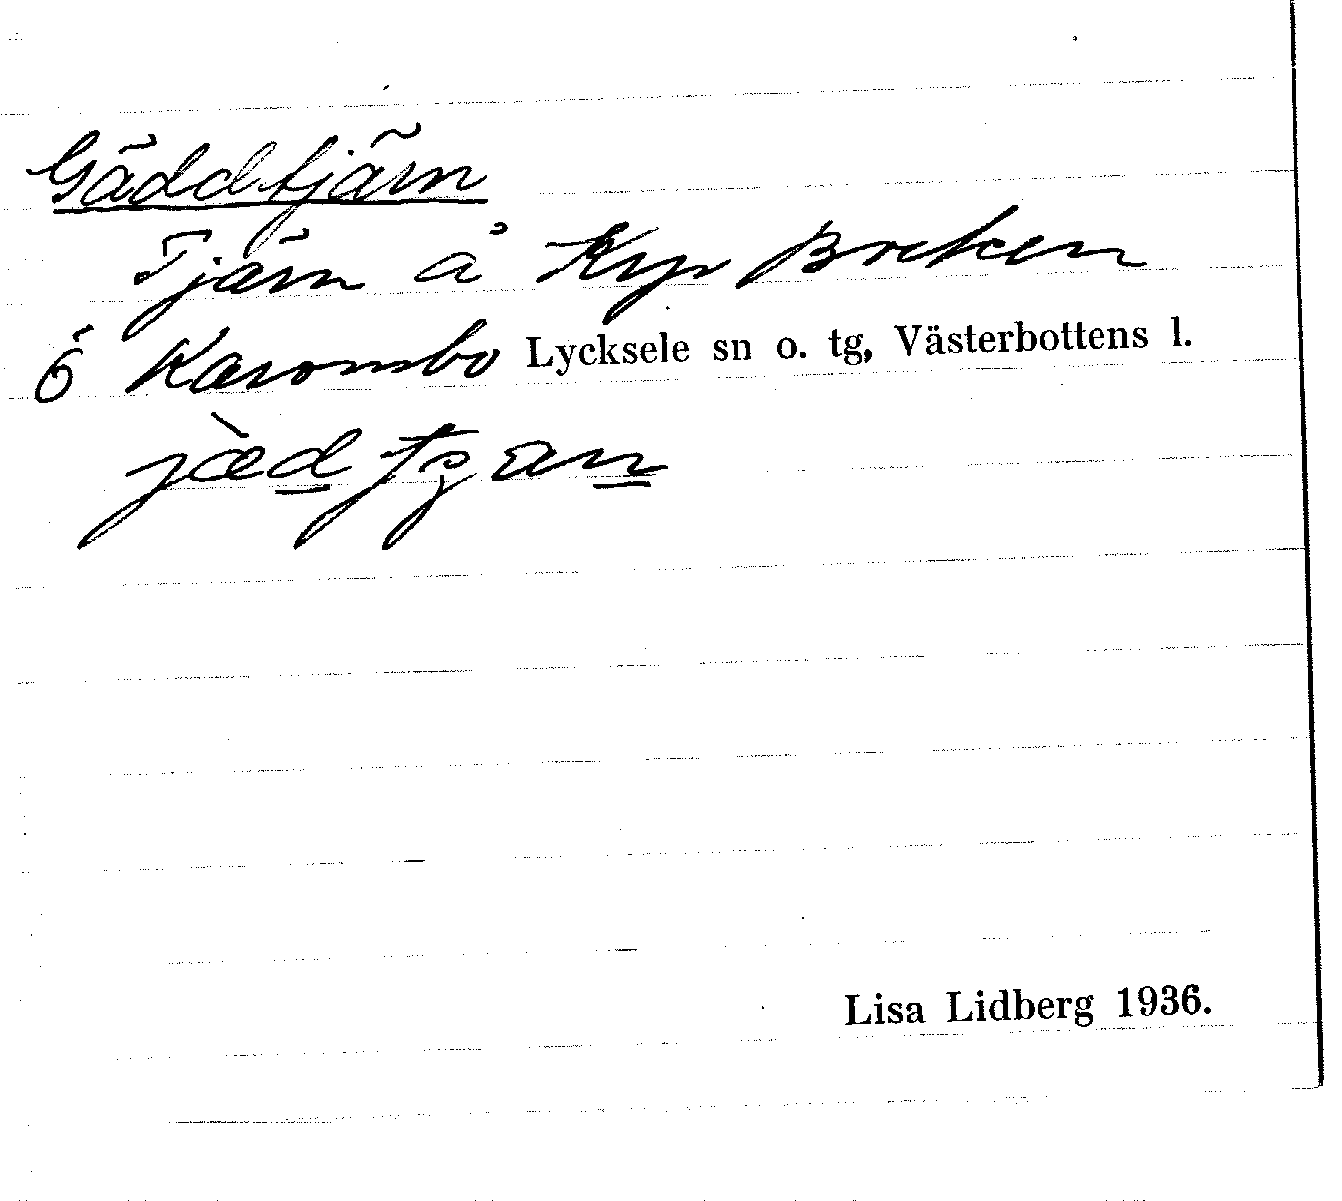 Gäddtjärn
Tjärn å Kyp Broken
Ö Karombo Lycksele sn o. tg, Västerbottens l.
jæd
Lisa Lidberg 1936.